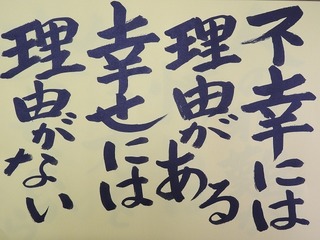 不幸には
理由がある
幸せには
理由がない